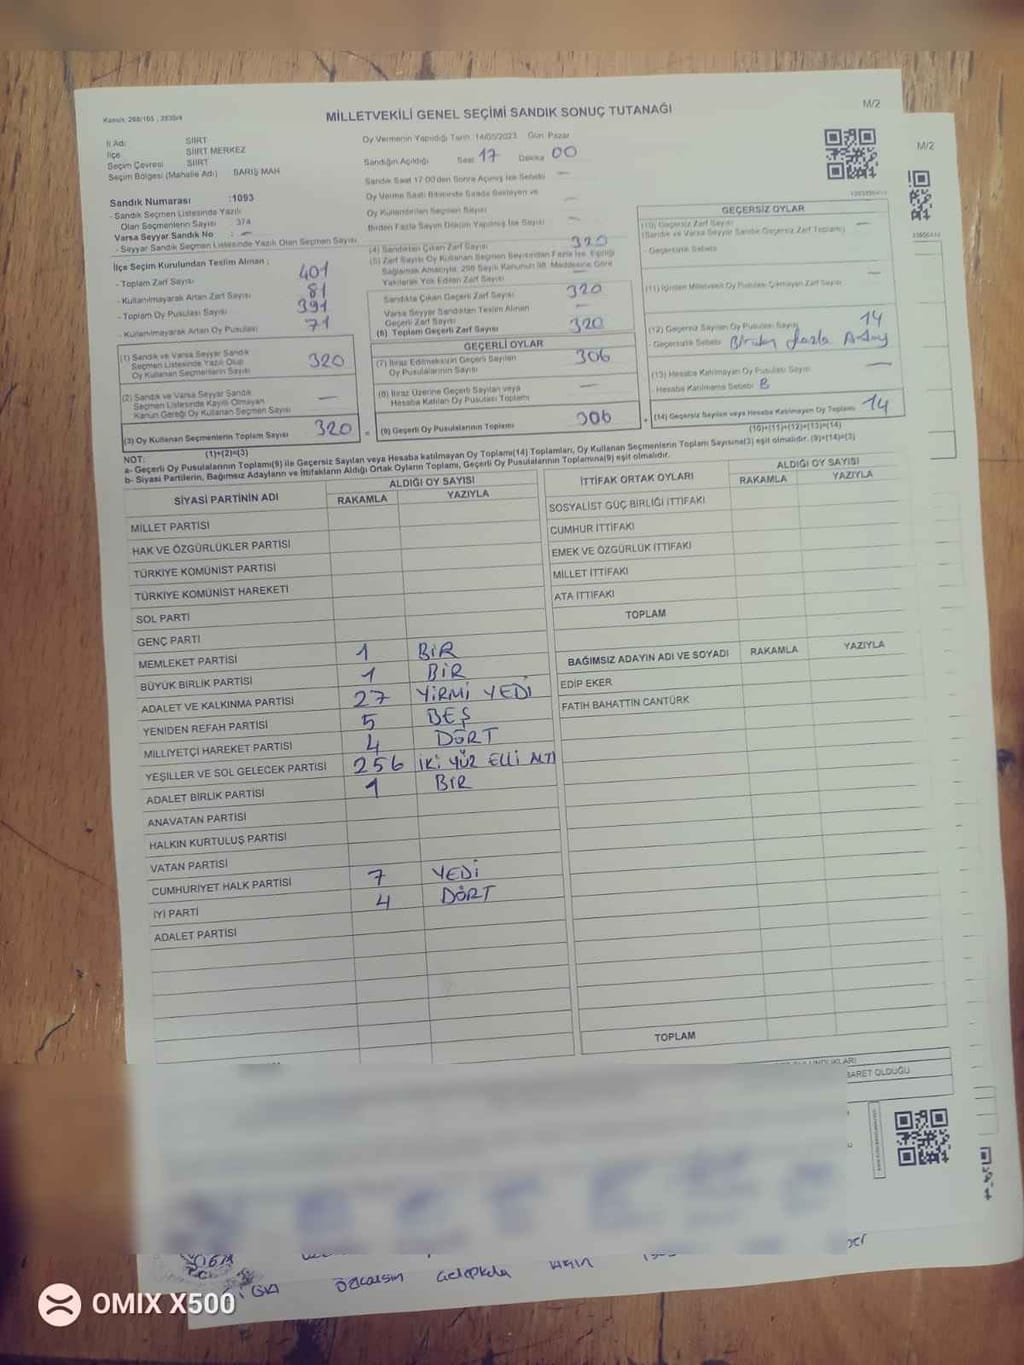 Kanun: 298/105, 2839/4
MİLLETVEKİLİ GENEL SEÇİMİ SANDIK SONUÇ TUTANAĞI
M/2
M/2
İl Adı: SİİRT
İlçe SİİRT MERKEZ
Seçim Çevresi SİİRT
Seçim Bölgesi (Mahalle Adı) BARIŞ MAH
Oy Vermenin Yapıldığı Tarih: 14/05/2023 Gün: Pazar
Sandığın Açıldığı Saat 17 Dakika 00
Sandık Saat 17:00'den Sonra Açılmış İse Sebebi —
Oy Verme Saati Bitiminde Sırada Bekleyen ve
Oy Kullandırılan Seçmen Sayısı —
Birden Fazla Sayım Döküm Yapılmış İse Sayısı —
Sandık Numarası :1093
- Sandık Seçmen Listesinde Yazılı
Olan Seçmenlerin Sayısı 374
Varsa Seyyar Sandık No : —
- Seyyar Sandık Seçmen Listesinde Yazılı Olan Seçmen Sayısı
İlçe Seçim Kurulundan Teslim Alınan :
- Toplam Zarf Sayısı 401
- Kullanılmayarak Artan Zarf Sayısı 81
- Toplam Oy Pusulası Sayısı 391
- Kullanılmayarak Artan Oy Pusulası 71
(1) Sandık ve Varsa Seyyar Sandık
Seçmen Listesinde Yazılı Olup
Oy Kullanan Seçmenlerin Sayısı 320
(2) Sandık ve Varsa Seyyar Sandık
Seçmen Listesinde Kayıtlı Olmayan
Kanun Gereği Oy Kullanan Seçmen Sayısı —
(3) Oy Kullanan Seçmenlerin Toplam Sayısı 320
(1)+(2)=(3)
(4) Sandıktan Çıkan Zarf Sayısı 320
(5) Zarf Sayısı Oy Kullanan Seçmen Sayısından Fazla İse, Eşitliği
Sağlamak Amacıyla, 298 Sayılı Kanunun 98. Maddesine Göre
Yakılarak Yok Edilen Zarf Sayısı —
Sandıkta Çıkan Geçerli Zarf Sayısı 320
Varsa Seyyar Sandıktan Teslim Alınan
Geçerli Zarf Sayısı —
(6) Toplam Geçerli Zarf Sayısı 320
GEÇERLİ OYLAR
(7) İtiraz Edilmeksizin Geçerli Sayılan
Oy Pusulalarının Sayısı 306
(8) İtiraz Üzerine Geçerli Sayılan veya
Hesaba Katılan Oy Pusulası Toplamı —
= (9) Geçerli Oy Pusulalarının Toplamı 306
GEÇERSİZ OYLAR
(10) Geçersiz Zarf Sayısı
(Sandık ve Varsa Seyyar Sandık Geçersiz Zarf Toplamı) —
- Geçersizlik Sebebi
(11) İçinden Milletvekili Oy Pusulası Çıkmayan Zarf Sayısı —
(12) Geçersiz Sayılan Oy Pusulası Sayısı 14
- Geçersizlik Sebebi Birden fazla Aday
(13) Hesaba Katılmayan Oy Pusulası Sayısı —
- Hesaba Katılmama Sebebi
+ (14) Geçersiz Sayılan veya Hesaba Katılmayan Oy Toplamı 14
(10)+(11)+(12)+(13)=(14)
NOT:
a- Geçerli Oy Pusulalarının Toplamı(9) ile Geçersiz Sayılan veya Hesaba katılmayan Oy Toplamı(14) Toplamları, Oy Kullanan Seçmenlerin Toplam Sayısına(3) eşit olmalıdır. (9)+(14)=(3)
b- Siyasi Partilerin, Bağımsız Adayların ve İttifakların Aldığı Ortak Oyların Toplamı, Geçerli Oy Pusulalarının Toplamına(9) eşit olmalıdır.
SİYASİ PARTİNİN ADI ALDIĞI OY SAYISI
RAKAMLA YAZIYLA
MİLLET PARTİSİ
HAK VE ÖZGÜRLÜKLER PARTİSİ
TÜRKİYE KOMÜNİST PARTİSİ
TÜRKİYE KOMÜNİST HAREKETİ
SOL PARTİ
GENÇ PARTİ
MEMLEKET PARTİSİ 1 BİR
BÜYÜK BİRLİK PARTİSİ 1 BİR
ADALET VE KALKINMA PARTİSİ 27 YİRMİ YEDİ
YENİDEN REFAH PARTİSİ 5 BEŞ
MİLLİYETÇİ HAREKET PARTİSİ 4 DÖRT
YEŞİLLER VE SOL GELECEK PARTİSİ 256 İKİ YÜZ ELLİ ALTI
ADALET BİRLİK PARTİSİ 1 BİR
ANAVATAN PARTİSİ
HALKIN KURTULUŞ PARTİSİ
VATAN PARTİSİ
CUMHURİYET HALK PARTİSİ 7 YEDİ
İYİ PARTİ 4 DÖRT
ADALET PARTİSİ
İTTİFAK ORTAK OYLARI ALDIĞI OY SAYISI
RAKAMLA YAZIYLA
SOSYALİST GÜÇ BİRLİĞİ İTTİFAKI
CUMHUR İTTİFAKI
EMEK VE ÖZGÜRLÜK İTTİFAKI
MİLLET İTTİFAKI
ATA İTTİFAKI
TOPLAM
BAĞIMSIZ ADAYIN ADI VE SOYADI RAKAMLA YAZIYLA
EDİP EKER
FATİH BAHATTİN CANTÜRK
TOPLAM
BARET OLDUĞU
OMIX X500